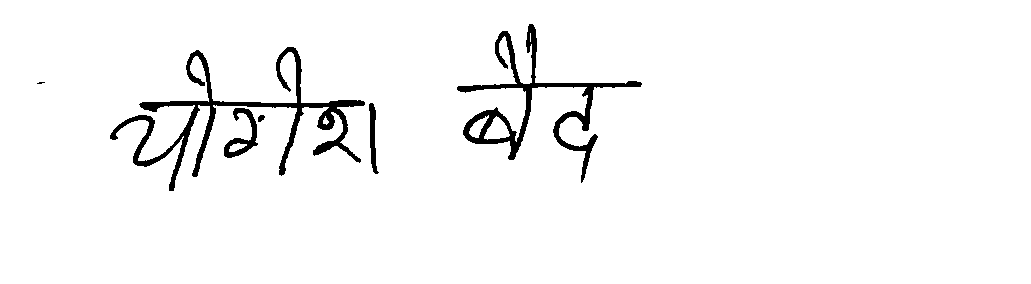 योगेश बैद